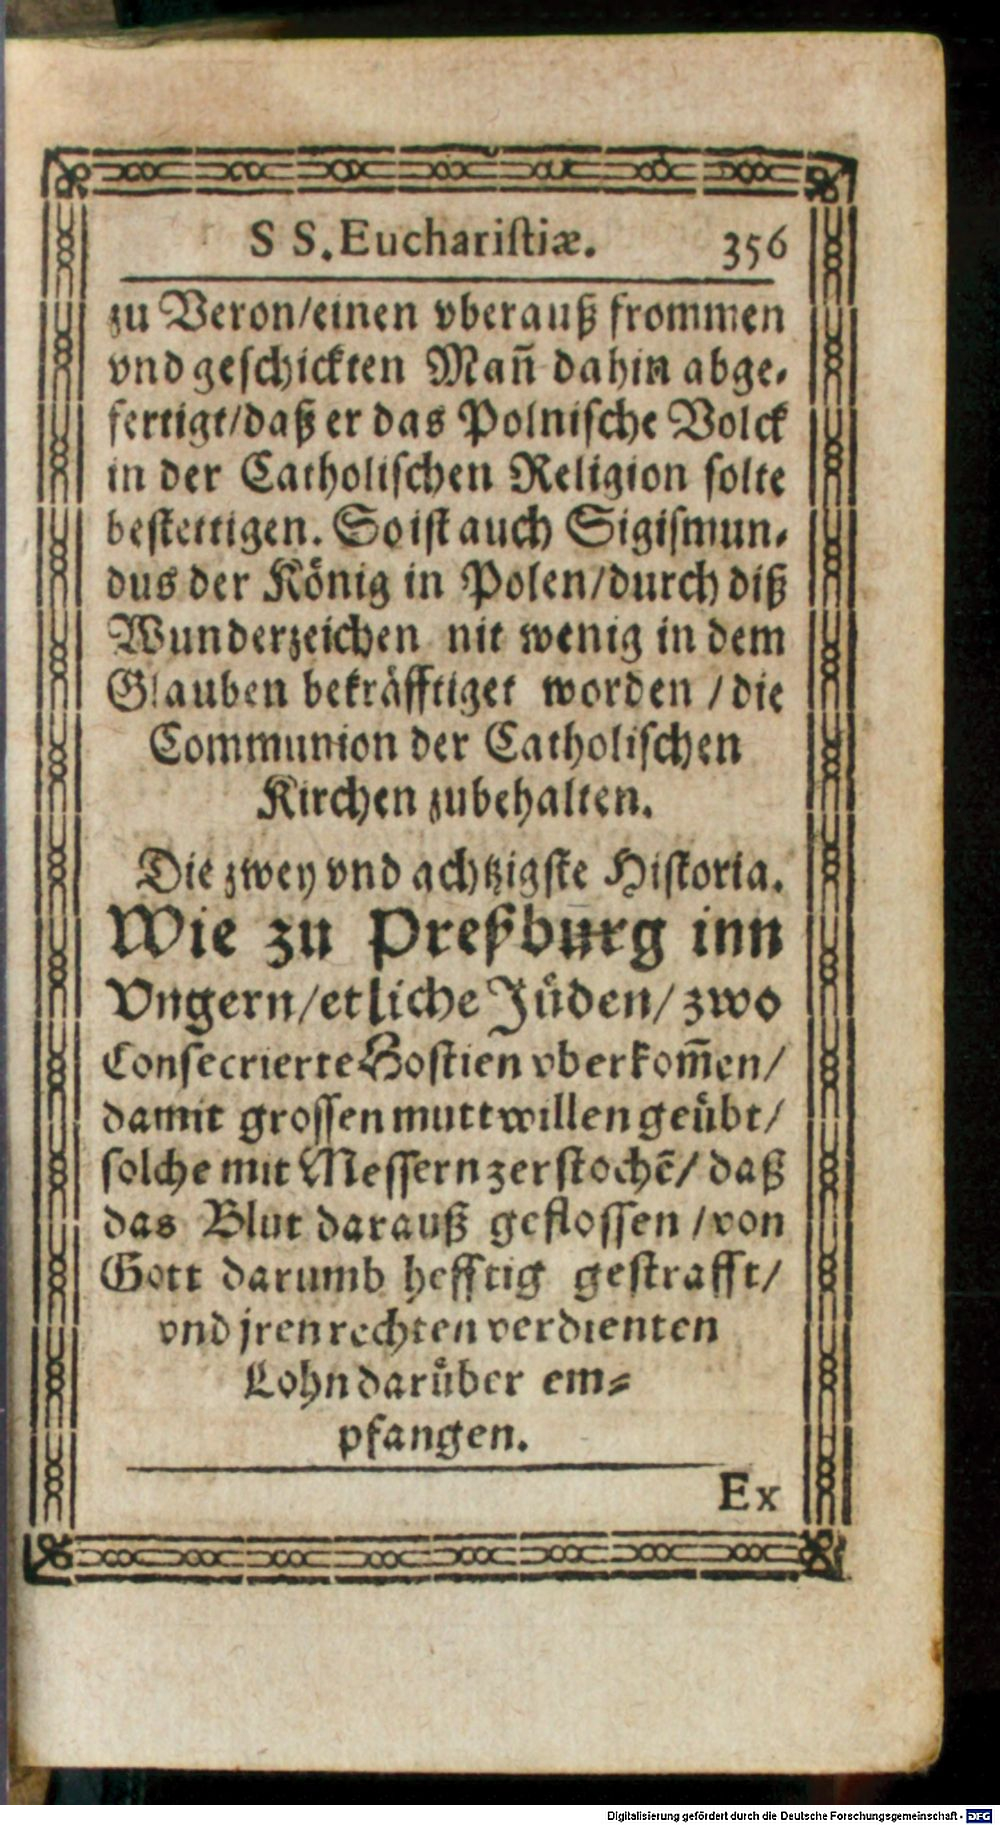 S S. Euchariſtiæ. 356
zu Veron/einen vberauß frommen
vnd geſchickten Mañ dahin abge⸗
fertigt/daß er das Polniſche Volck
in der Catholiſchen Religion ſolte
beſtettigen. So iſt auch Sigiſmun⸗
dus der König in Polen/durch diß
Wunderzeichen nit wenig in dem
Glauben bekräfftiget worden / die
Communion der Catholiſchen
Kirchen zubehalten.
Die zwey vnd achtzigſte Hiſtoria.
Wie zu Preßburg inn
Vngern/etliche Jůden/ zwo
Conſecrierte Hoſtien vberkom̃en/
damit groſſen muttwillen geůbt/
ſolche mit Meſſern zerſtochẽ/ daß
das Blut darauß gefloſſen / von
Gott darumb hefftig geſtrafft/
vnd jren rechten verdienten
Lohn darůber em⸗
pfangen.
Ex
Digitalisierung gefördert durch die Deutsche Forschungsgemeinschaft - DFG